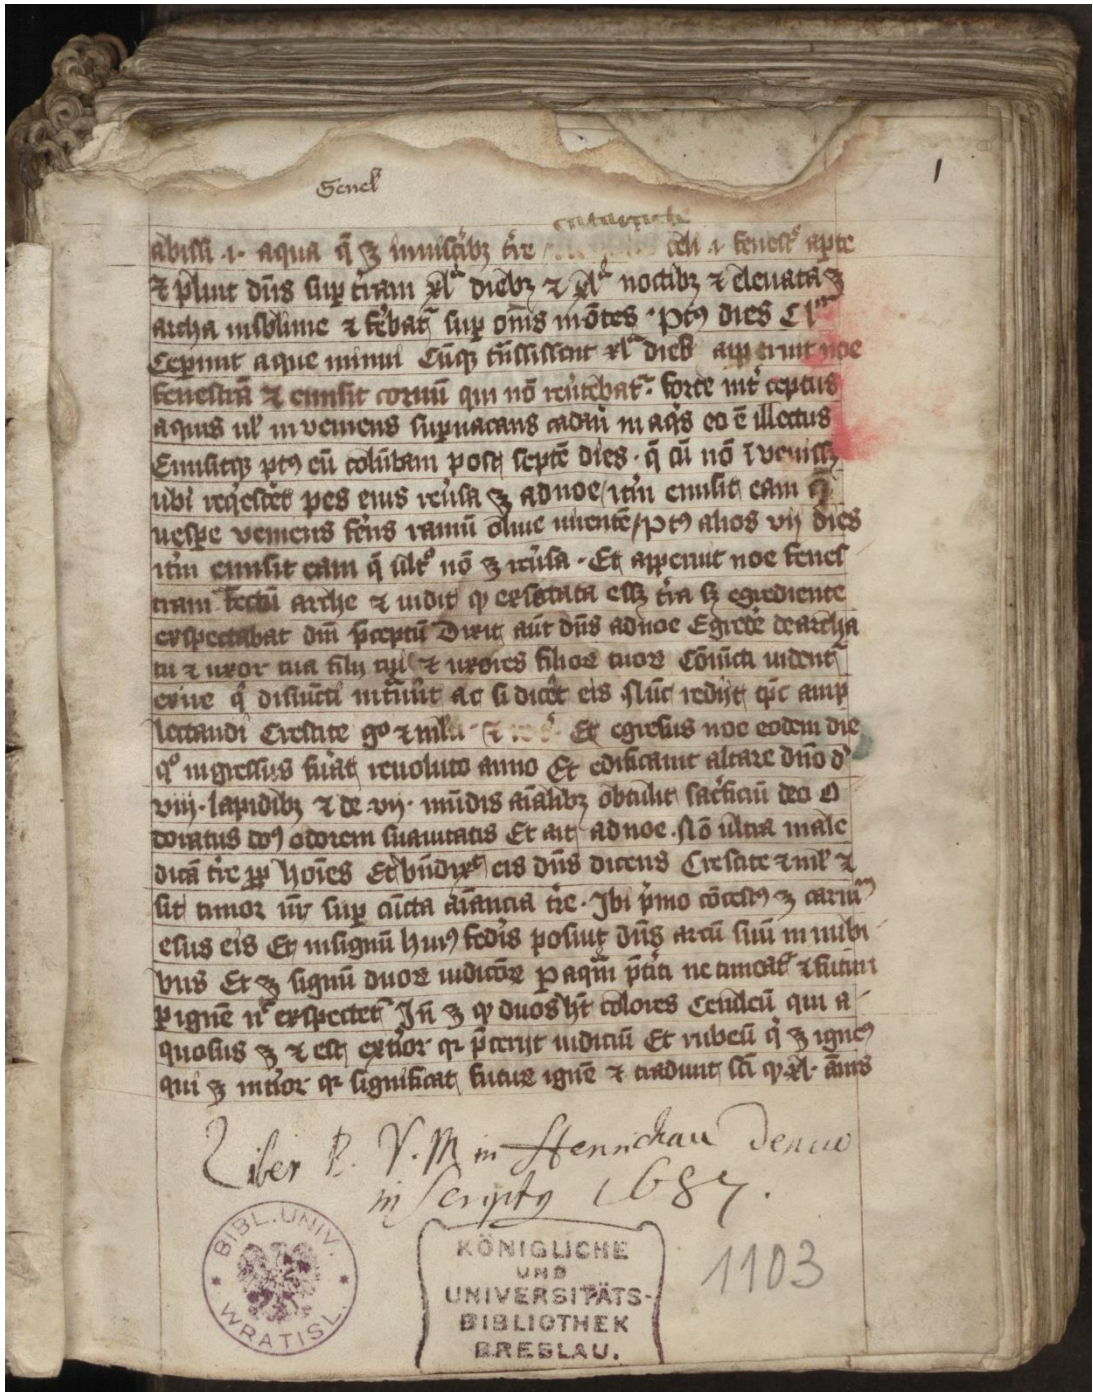 Genes
1
abissi .i. aqua q̄ ꝫ in uisc̄ibꝫ t̄re celi .i. fenest͛ aꝑte
⁊ pluit dn̄s suꝑ t̄ram xlᵃ diebꝫ ⁊ xlᵃ noctibꝫ ⁊ eleuata ꝫ
archa in sblime ⁊ feͬbat᷑ suꝑ om̄s mōtes . Ptꝰ dies clᵗᵃ
Ceꝑunt aque minui Cūqꝫ tn̄sissent xlᵃ dieb apperuit noe
fenestrā ⁊ emisit coruū qui nō reūtebat᷑ . forte int͛ceptus
aquis ul̕ inveniens suꝑnatans cadau͛ in aqis eo ē illectus
Emisitqꝫ ptꝰ eū colūbam post septē dies . q̄ cū nō īvenissꝫ
ubi reqiesc̄et pes eius reūsa ꝫ ad noe / it̄m emisit eam q̄
uesꝑe veniens fērs ramū oliue uirentē / Ptꝰ alios vij dies
it̄m emisit eam q̄ ult͛ nō ꝫ reūsa . Et apperuit noe fenes
tram tectū arche ⁊ uidit ꝙ exsiccata essꝫ t̄ra sꝫ egrediente
exspectabat dn̄i p̄ceptū Dixit aūt dn̄s ad noe Egrede de archa
tu ⁊ uxor tua filij tui ⁊ uxores filioꝝ tuoꝝ Cōiūcti uident᷑
exiue q̄ disiūcti int͛uēt ac si dic̄et eis Nūc redijt tp̄c amp
lectandi Crescite gͦ ⁊ ml̄ti Et egressus noe eodem die
qͦ ingressus fuat᷑ reuoluto anno Et edificauit altare dn̄o d̕
viij . lapidibꝫ ⁊ de vij . mūdis aīalibꝫ obtulit sac͛ficiū deo O
doratus dꝰ odorem suauitatis Et ait ad noe . Nō ultra male
dicā t̄re ꝓꝑ hoīes Et bn̄dixᵗ eis dn̄s dicens Crescite ⁊ ml̄ ⁊
sit timor ur̄ suꝑ cūcta aīantia t̄re . Ibi pͥmo cōcessꝰ ꝫ carniū
esus eis Et in signū huiꝰ fed̄is posuit dn̄s arcū suū in nubi
bus Et ꝫ signū duoꝝ iudicioꝝ ꝑ aqam p̄t͛iti ne timeat᷑ ⁊ futuri
ꝑ ignē ut exspectet᷑ In̄ ꝫ ꝙ duos ht̄ colores Ceruleū qui a
quosus ꝫ ⁊ est ext͛ior qꝛ p̄terijt iudiciū Et rubeū qi ꝫ igneꝰ
qui ꝫ int͛ior qꝛ significat futuꝝ ignē ⁊ tradunt sc̄i ꝙ xl. annis
Liber B. V. M in Henrichau denuo
inscriptꝰ 1687.
BIBL. UNIV. WRATISL.
KÖNIGLICHE
UND
UNIVERSITÄTS-
BIBLIOTHEK
BRESLAU.
1103